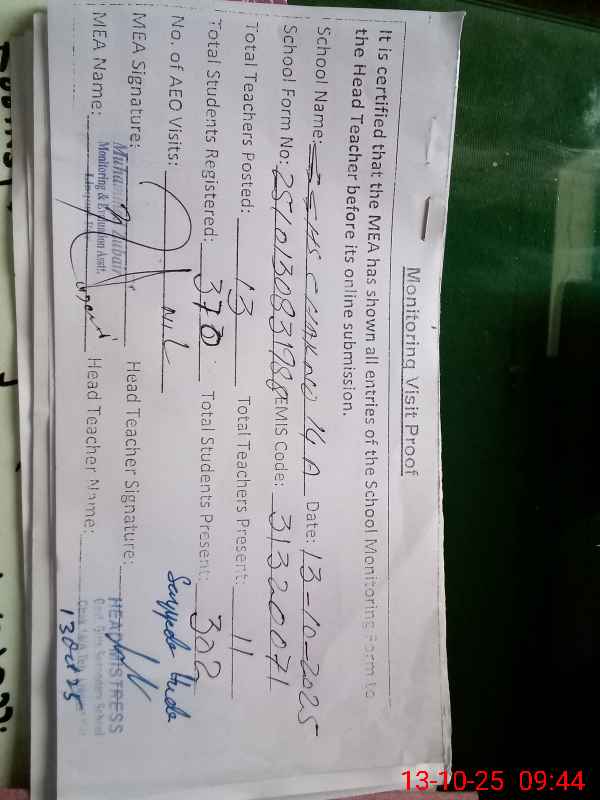 Monitoring Visit Proof
It is certified that the MEA has shown all entries of the School Monitoring Form to
the Head Teacher before its online submission.
School Name: GGHS CHAK NO 14 A Date: 13-10-2025
School Form No: EMIS Code: 31320071
Total Teachers Posted: 13 Total Teachers Present: 11
Total Students Registered: 370 Total Students Present: 302
No. of AEO Visits: NIL
MEA Signature: Head Teacher Signature:
Monitoring & Evaluation Asstt.
HEADMISTRESS
MEA Name: Head Teacher Name:
13 Oct 25
13-10-25 09:44